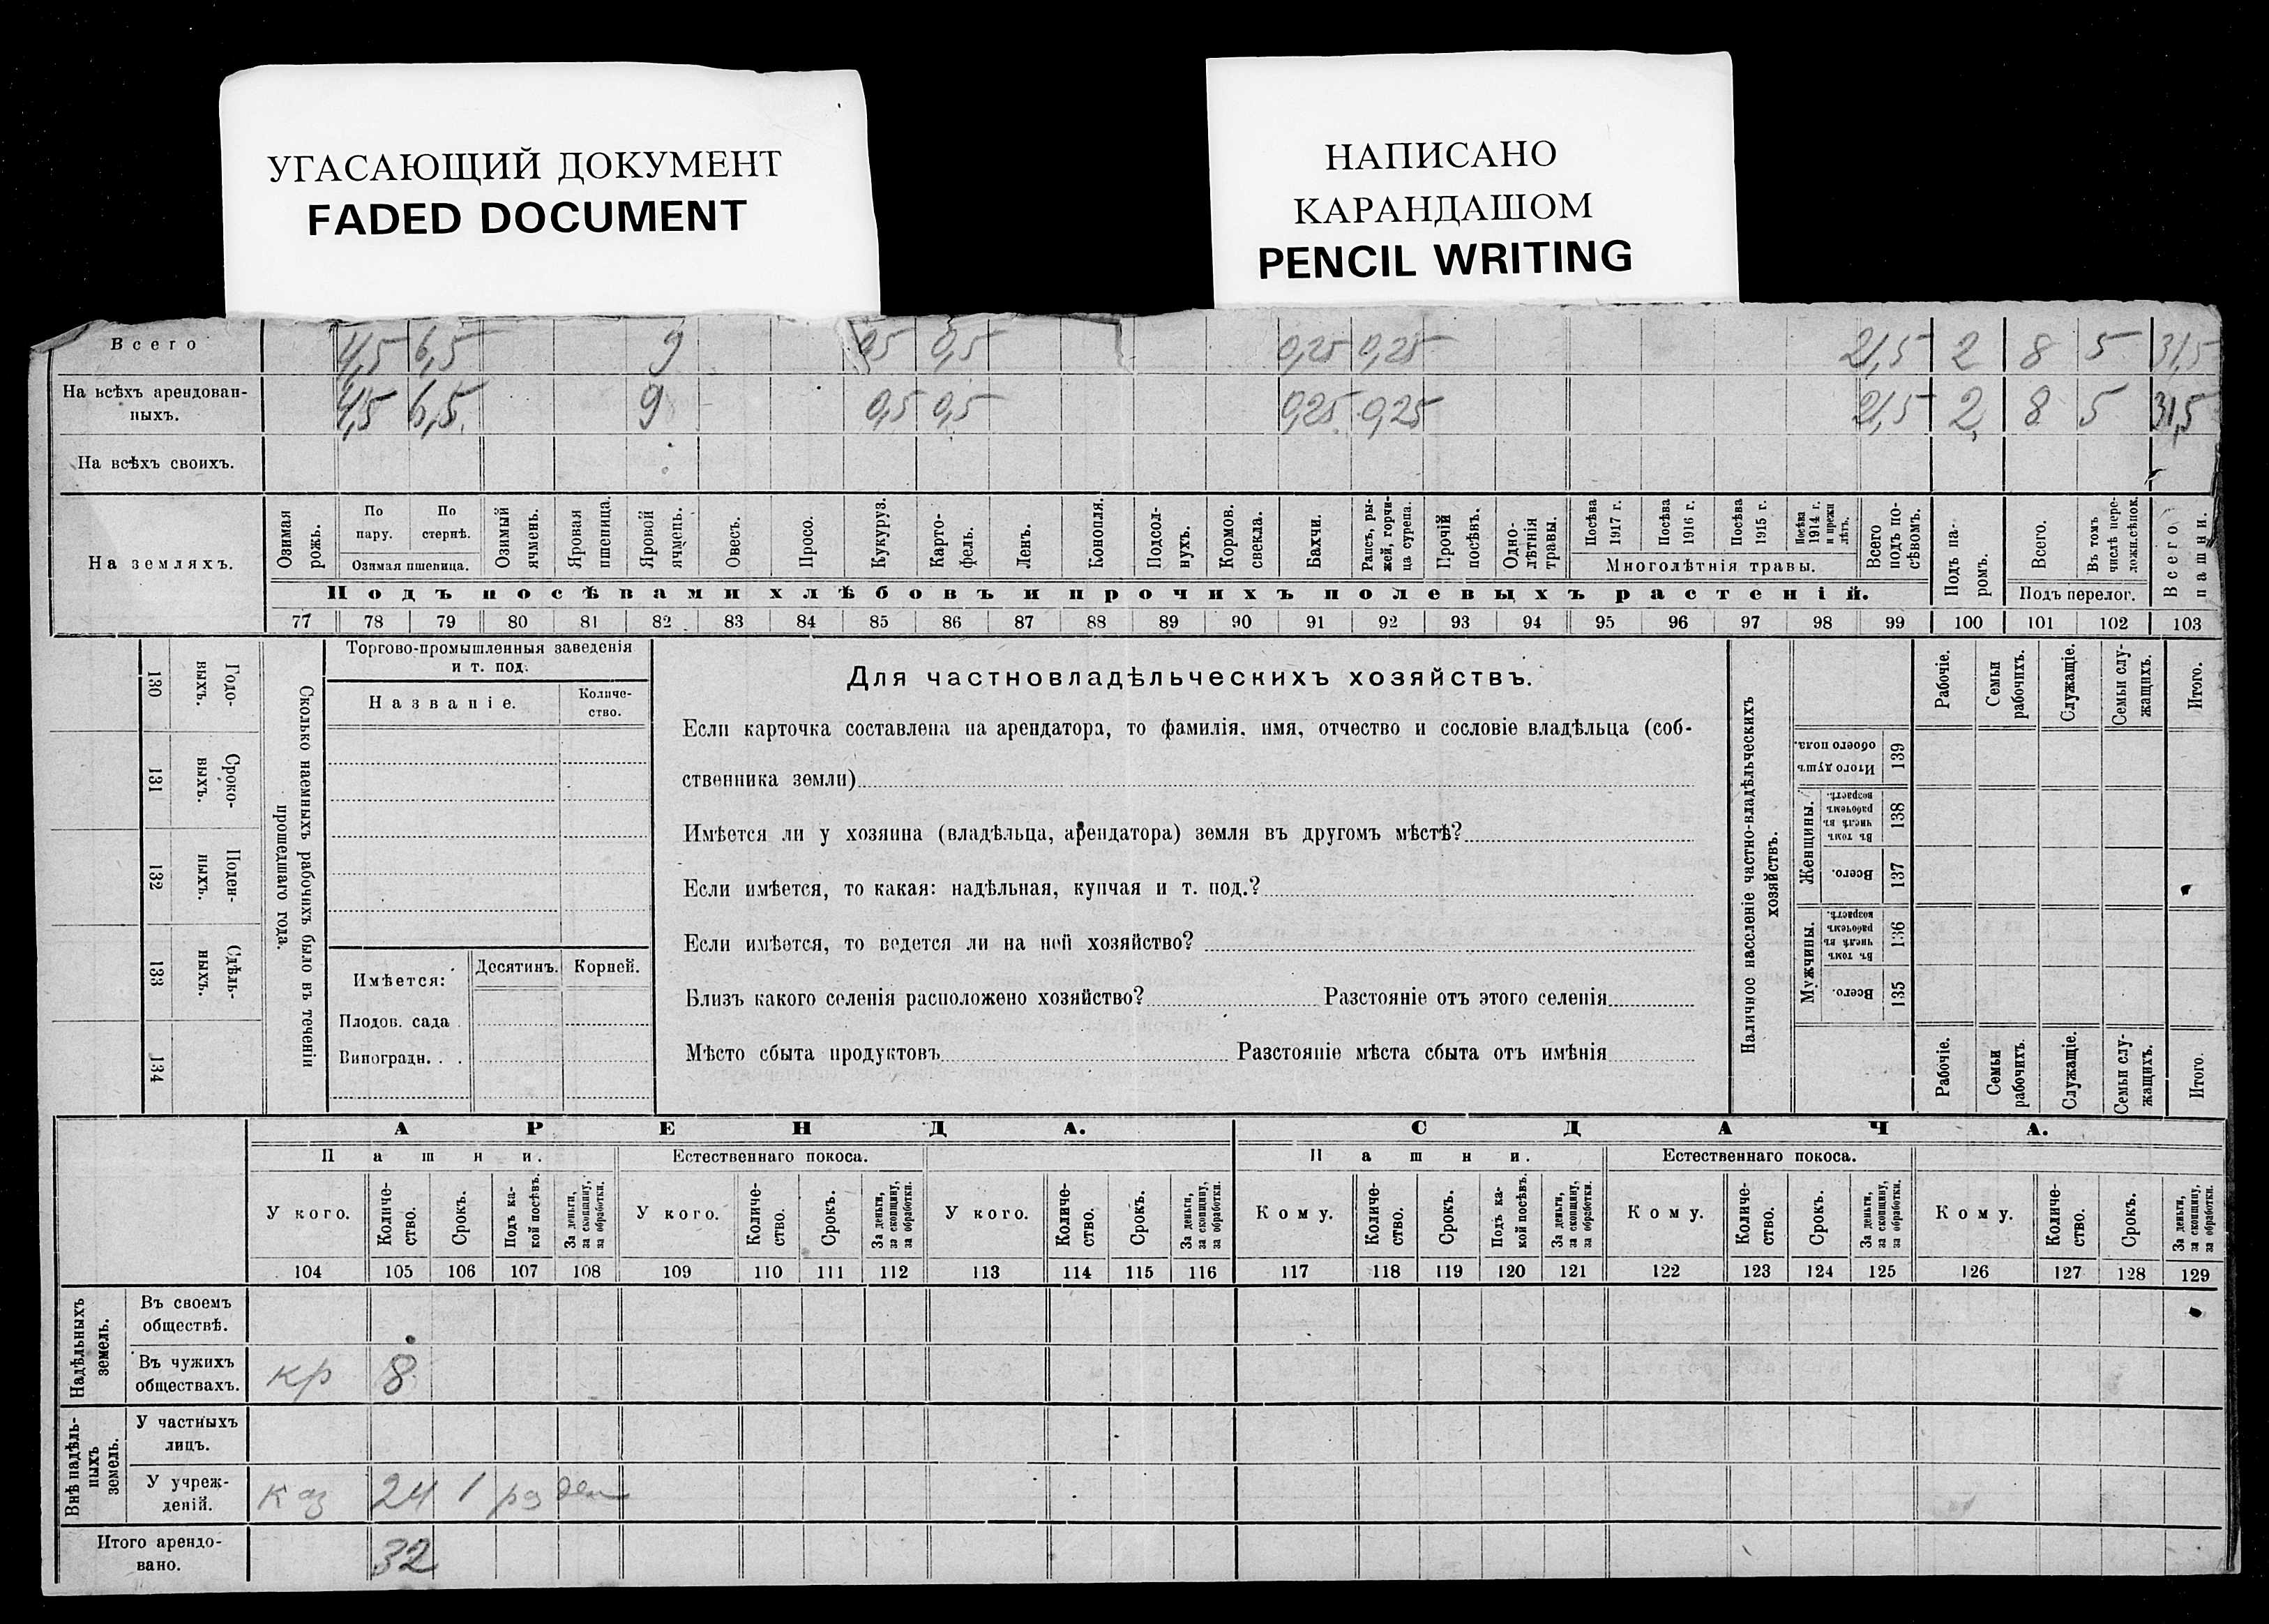 УГАСАЮЩИЙ ДОКУМЕНТ
FADED DOCUMENT
НАПИСАНО
КАРАНДАШОМ
PENCIL WRITING
Всего 4,5 6,5 9 0,5 0,5 0,25 0,25 21,5 2 8 5 31,5
На всѣхъ арендован-
ныхъ. 4,5 6,5 9 0,5 0,5 0,25 0,25 21,5 2 8 5 31,5
На всѣхъ своихъ.
На земляхъ.
Озимая рожь.
По пару.
По стернѣ.
Озимая пшеница.
Озимый ячмень.
Яровая пшеница.
Яровой ячмень.
Овесъ.
Просо.
Кукуруз.
Карто-
фель.
Ленъ.
Конопля.
Подсол-
нухъ.
Кормов.
свекла.
Бахчи.
Рапсъ, ры-
жей, горчи-
ца сурепа.
Прочій
посѣвъ.
Одно-
лѣтнія
травы.
Посѣва
1917 г.
Посѣва
1916 г.
Посѣва
1915 г.
Посѣва
1914 г.
и прежн
лѣтъ.
Многолѣтнія травы.
Всего
подъ по-
сѣвомъ.
Подъ па-
ромъ.
Всего.
Въ томъ
числѣ пере-
ложн.сѣнок.
Подъ перелог.
Всего
пашни.
Подъ посѣвами хлѣбовъ и прочихъ полевыхъ растеній.
77 78 79 80 81 82 83 84 85 86 87 88 89 90 91 92 93 94 95 96 97 98 99 100 101 102 103
130 Годо-
выхъ.
131 Сроко-
выхъ.
132 Поден-
ныхъ.
133 Сдѣль-
ныхъ.
134
Сколько наемныхъ рабочихъ было въ теченіи
прошедшаго года.
Торгово-промышленныя заведенія
и т. под.
Названіе.
Количе-
ство.
Имѣется: Десятинъ. Корней.
Плодов. сада
Виноградн. . .
Для частновладѣльческихъ хозяйствъ.
Если карточка составлена на арендатора, то фамилія, имя, отчество и сословіе владѣльца (соб-
ственника земли)
Имѣется ли у хозяина (владѣльца, арендатора) земля въ другомъ мѣстѣ?
Если имѣется, то какая: надѣльная, купчая и т. под.?
Если имѣется, то ведется ли на ней хозяйство?
Близъ какого селенія расположено хозяйство? Разстояніе отъ этого селенія
Мѣсто сбыта продуктовъ Разстояніе мѣста сбыта отъ имѣнія
Наличное населеніе частно-владѣльческихъ
хозяйствъ.
Рабочіе.
Семьи
рабочихъ.
Служащіе.
Семьи слу-
жащихъ.
Итого.
Итого душъ
обоего пола.
139
Женщины.
Въ томъ
числѣ въ
рабочемъ
возрастѣ.
138
Всего.
137
Мужчины.
Въ томъ
числѣ въ
рабочемъ
возрастѣ.
136
Всего.
135
Рабочіе.
Семьи
рабочихъ.
Служащіе.
Семьи слу-
жащихъ.
Итого.
АРЕНДА. СДАЧА.
Пашни. Естественнаго покоса. Пашни. Естественнаго покоса.
У кого.
Количе-
ство.
Срокъ.
Подъ ка-
кой посѣвъ.
За деньги,
за скопщину,
за обработки.
У кого.
Количе-
ство.
Срокъ.
За деньги,
за скопщину,
за обработки.
У кого.
Количе-
ство.
Срокъ.
За деньги,
за скопщину,
за обработки.
Кому.
Количе-
ство.
Срокъ.
Подъ ка-
кой посѣвъ.
За деньги,
за скопщину,
за обработки.
Кому.
Количе-
ство.
Срокъ.
За деньги,
за скопщину,
за обработки.
Кому.
Количе-
ство.
Срокъ.
За деньги,
за скопщину,
за обработки.
104 105 106 107 108 109 110 111 112 113 114 115 116 117 118 119 120 121 122 123 124 125 126 127 128 129
Надѣльныхъ
земель.
Въ своемъ
обществѣ.
Въ чужихъ
обществахъ. кр 8
Внѣ надѣль-
ныхъ
земель.
У частныхъ
лицъ.
У учреж-
деній. каз 24 1 рз ден
Итого арендо-
вано. 32